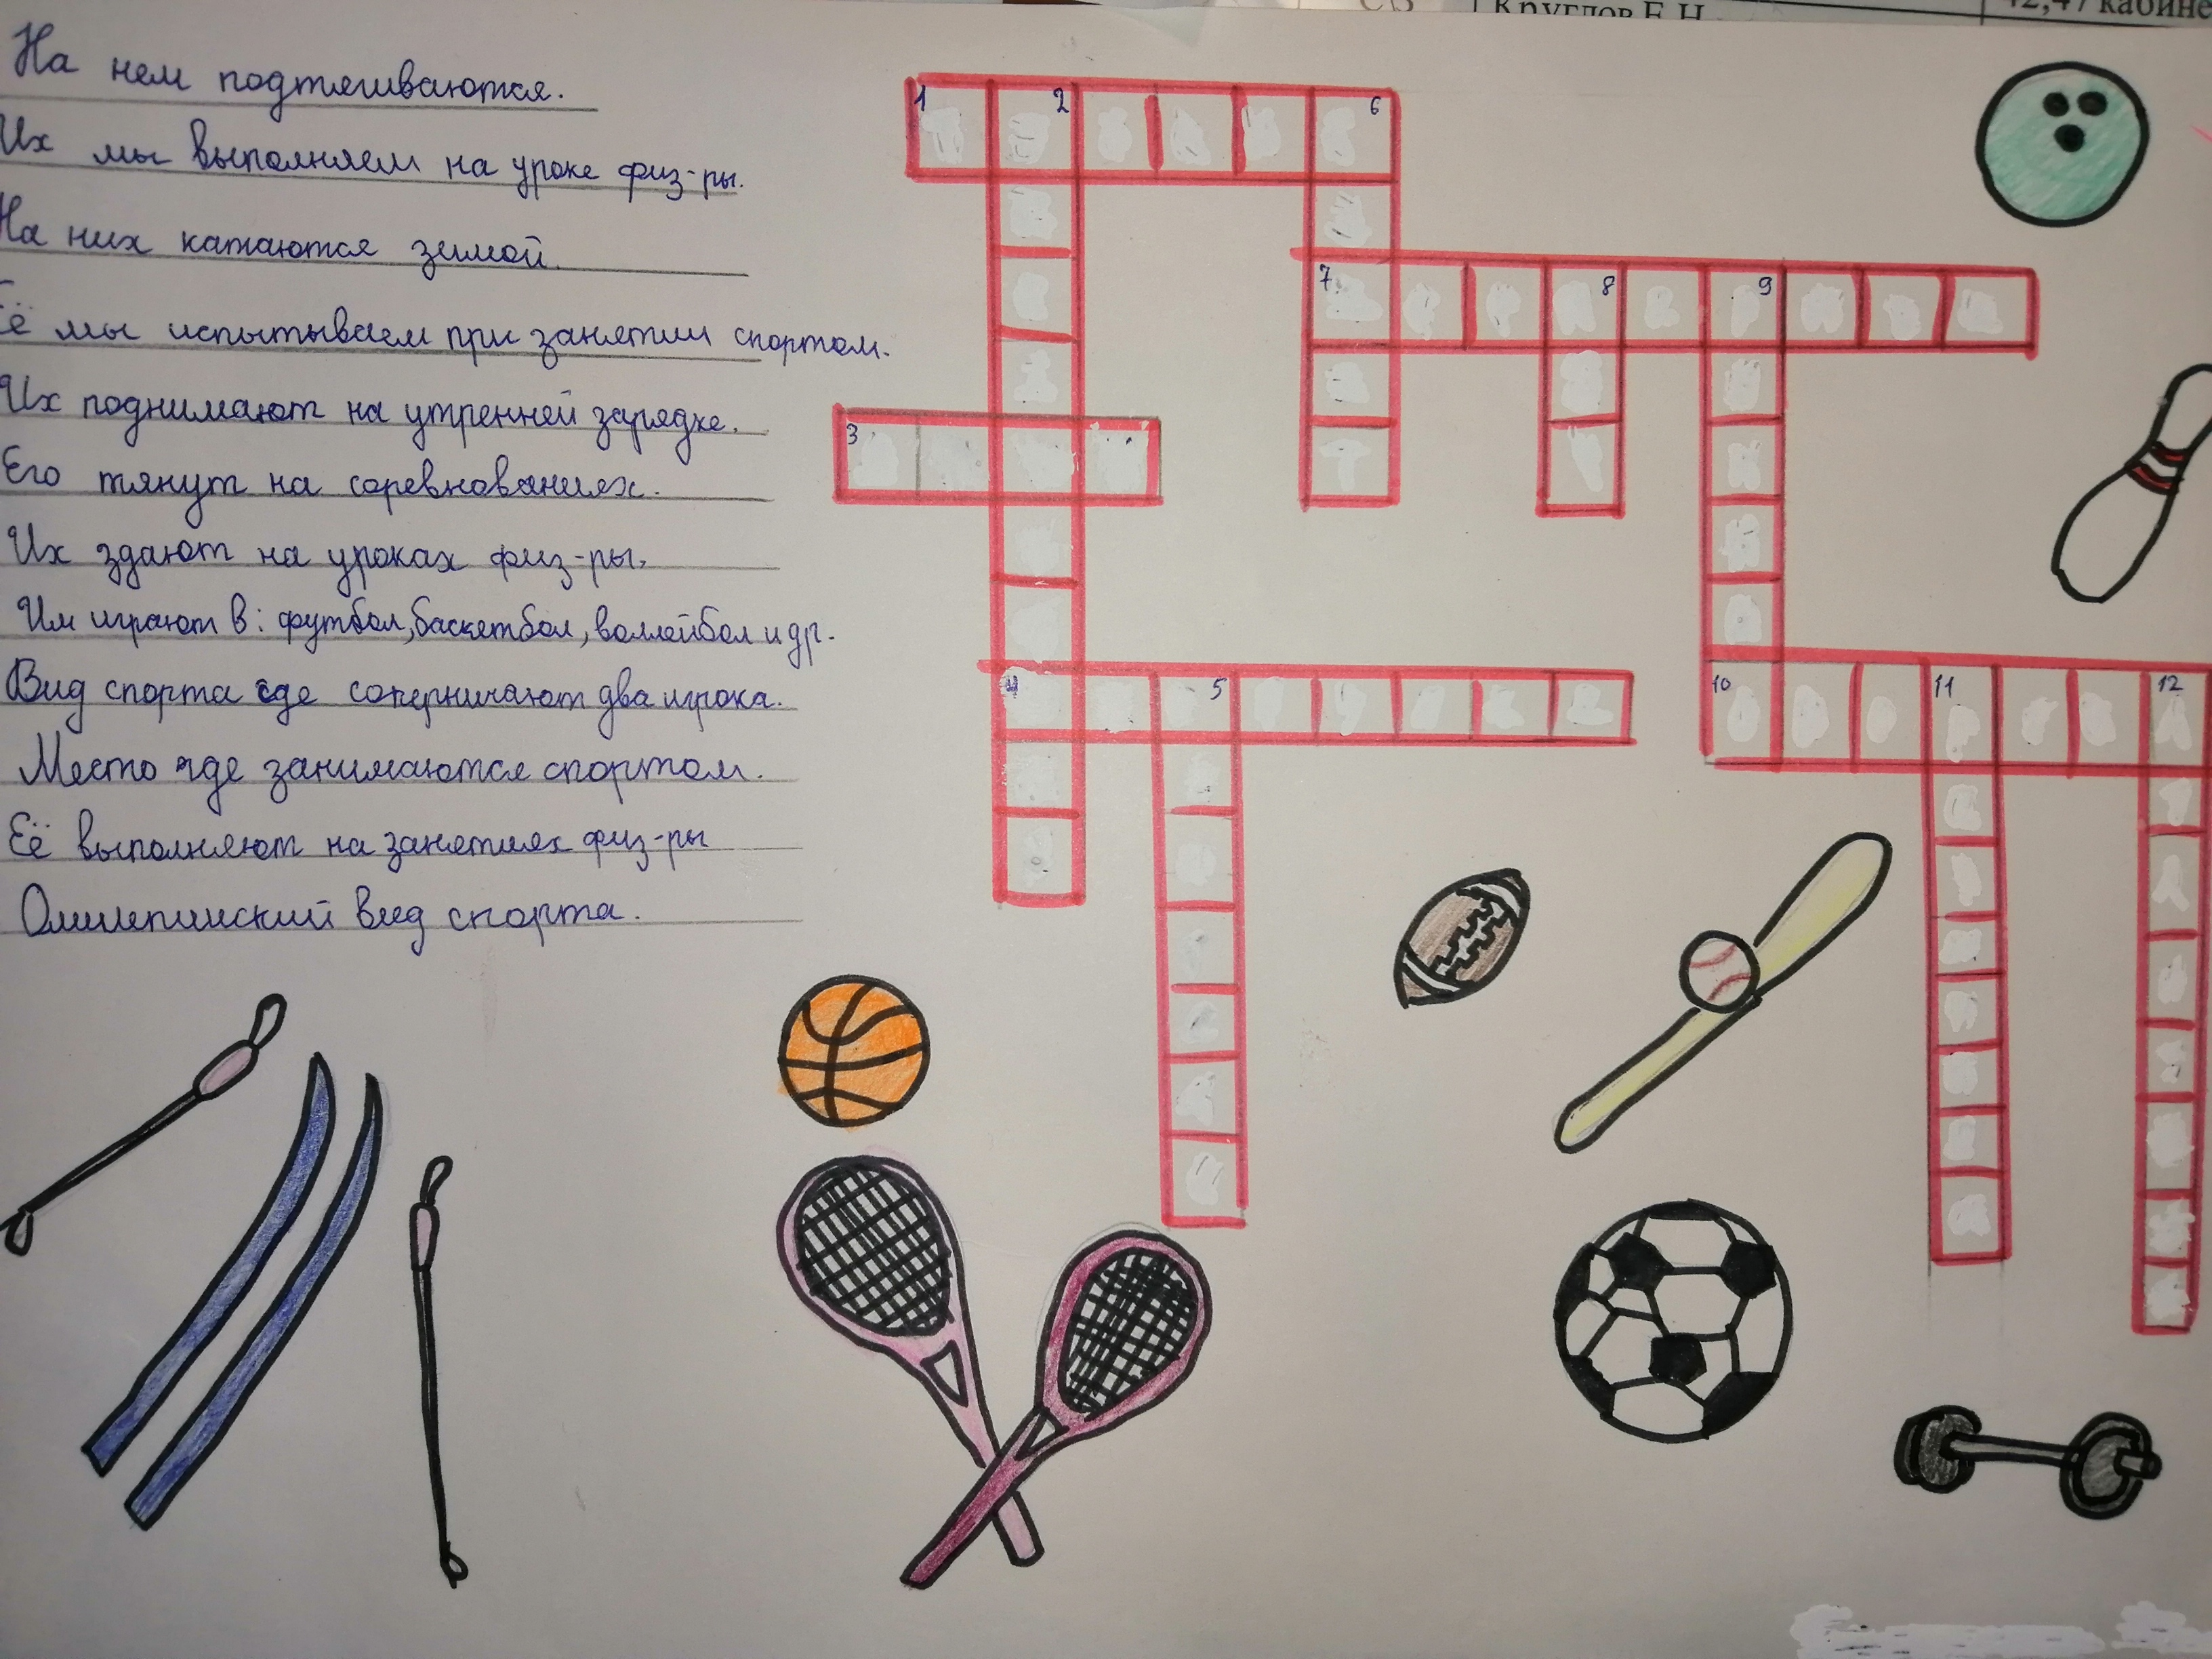 Круглов Е.Н
На нем подтягиваются.
Их мы выполняем на уроке физ-ры.
На них катаются зимой.
Её мы испытываем при занятии спортом.
Их поднимают на утренней зарядке.
Его тянут на соревнованиях.
Их здают на уроках физ-ры.
Им играют в: футбол, баскетбол, воллейбол и др.
Вид спорта где соперничают два игрока.
Место где занимаются спортом.
Её выполняют на занятиях физ-ры
Олимпийский вид спорта.
1 2 6
7 8 9
3
4 5
10 11 12